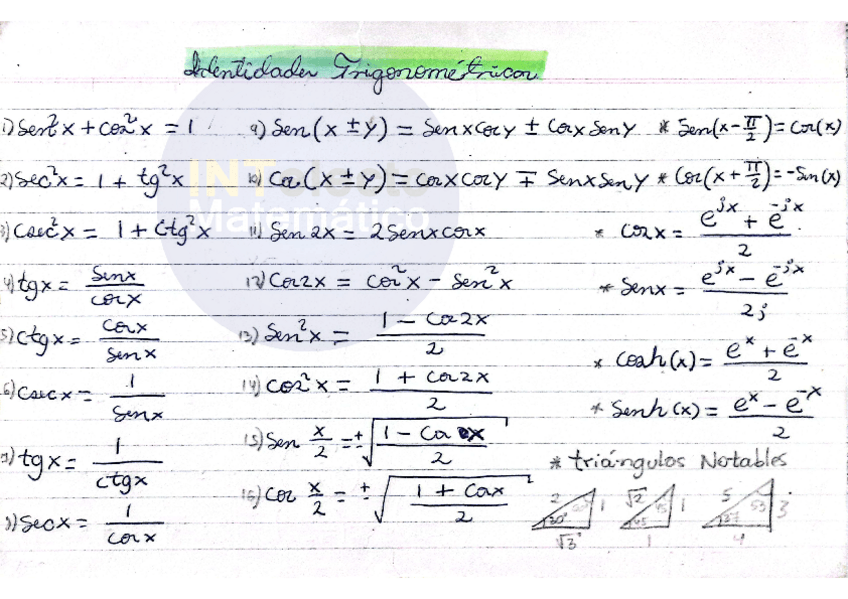 Identidades Trigonométricas
1) Sen²x + cos²x = 1
2) Sec²x = 1 + tg²x
3) Csec²x = 1 + Ctg²x
4) tgx = Senx / cosx
5) Ctgx = Cosx / Senx
6) Csecx = 1 / Senx
7) tgx = 1 / ctgx
8) Secx = 1 / cosx
9) Sen(x ± y) = Senx cosy ± Cosx Seny
10) Cos(x ± y) = Cosx Cosy ∓ Senx Seny
11) Sen2x = 2Senxcosx
12) Cos2x = cos²x - Sen²x
13) Sen²x = 1 - Cos2x / 2
14) Cos²x = 1 + Cos2x / 2
15) Sen x/2 = ± √ 1 - Cos x / 2
16) Cos x/2 = ± √ 1 + Cosx / 2
* Sen(x - π/2) = Cos(x)
* Cos(x + π/2) = -Sen(x)
* Cosx = e^jx + e^-jx / 2
* Senx = e^jx - e^-jx / 2j
* Cosh(x) = e^x + e^-x / 2
* Senh(x) = e^x - e^-x / 2
* triángulos Notables
2 1 30° √3
√2 45 1 45 1
5 53 3 37 4
INTelecto
Matemático